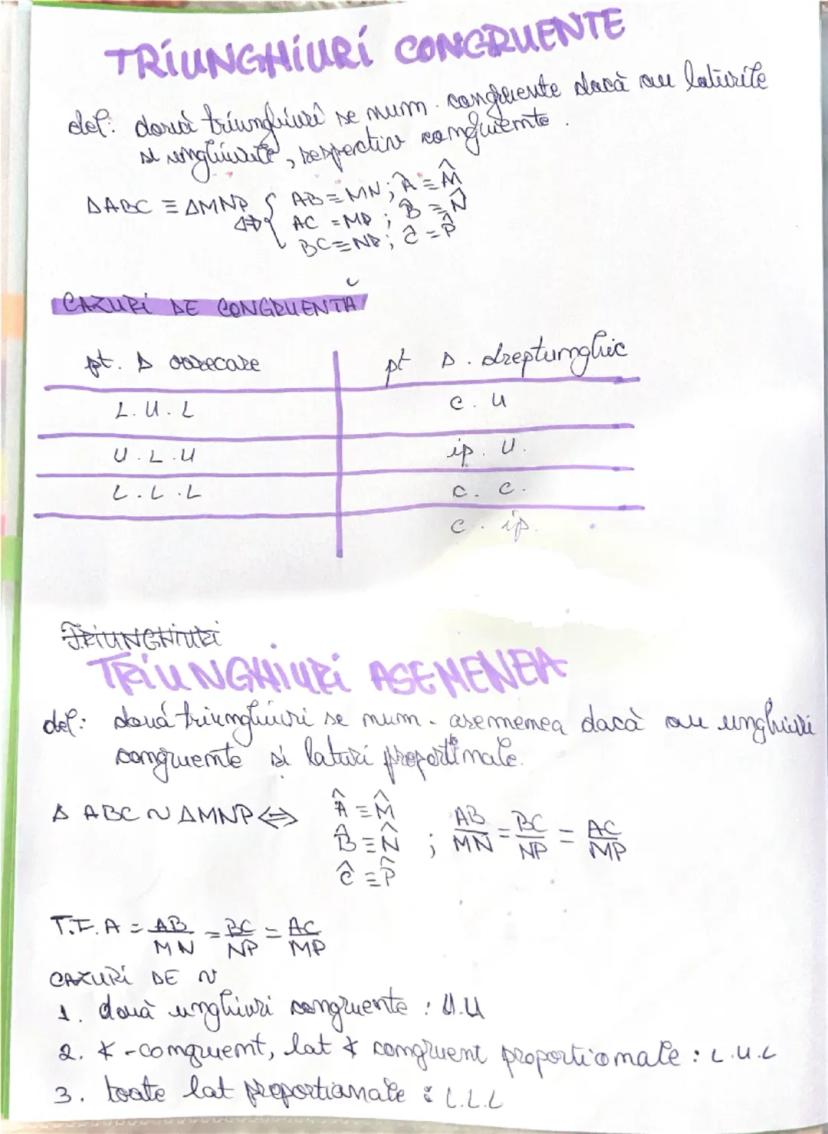 TRIUNGHIURI CONGRUENTE
def: două triunghiuri se num. congruente dacă au laturile
și unghiurile, respectiv congruente.
ΔABC ≡ ΔMNP ⇔ { AB ≡ MN; Â ≡ M̂
AC ≡ MP; B̂ ≡ N̂
BC ≡ NP; Ĉ ≡ P̂
CAZURI DE CONGRUENȚĂ
pt. Δ oarecare pt Δ. dreptunghic
L.U.L C.U
U.L.U ip. U.
L.L.L C. C.
C. ip.
TRIUNGHIURI
TRIUNGHIURI ASEMENEA
def: două triunghiuri se num. asemenea dacă au unghiuri
congruente și laturi proporționale.
Δ ABC ~ ΔMNP ⇔ Â ≡ M̂
B̂ ≡ N̂ ; AB/MN = BC/NP = AC/MP
Ĉ ≡ P̂
T.F.A = AB/MN = BC/NP = AC/MP
CAZURI DE ~
1. două unghiuri congruente : U.U
2. ∢-congruent, lat ∢ congruent proportionale : L.U.L
3. toate lat proportionale : L.L.L